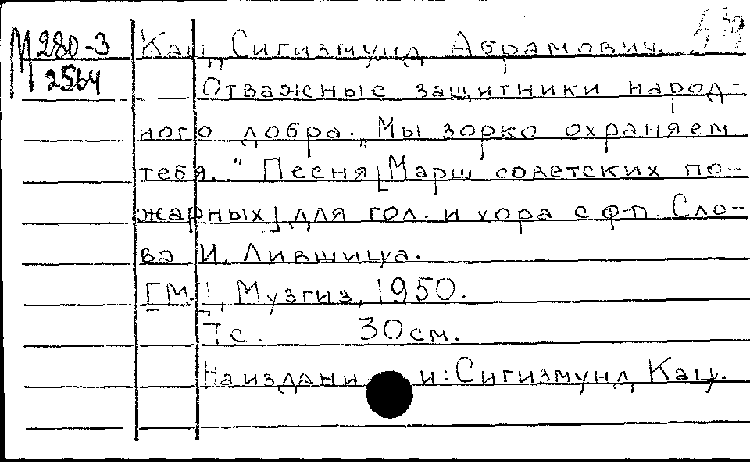 М 280-3 Кац, Сигизмунд Абрамович.
2564
Отважные защитники народ-
ного добра. „Мы зорко охраняем
тебя." Песня [Марш советских по-
жарных] для гол. и хора с ф-п. Сло-
ва И. Лившица.
[М.], Музгиз, 1950.
7 с. 30 см.
На издани и: Сигизмунд Кац.